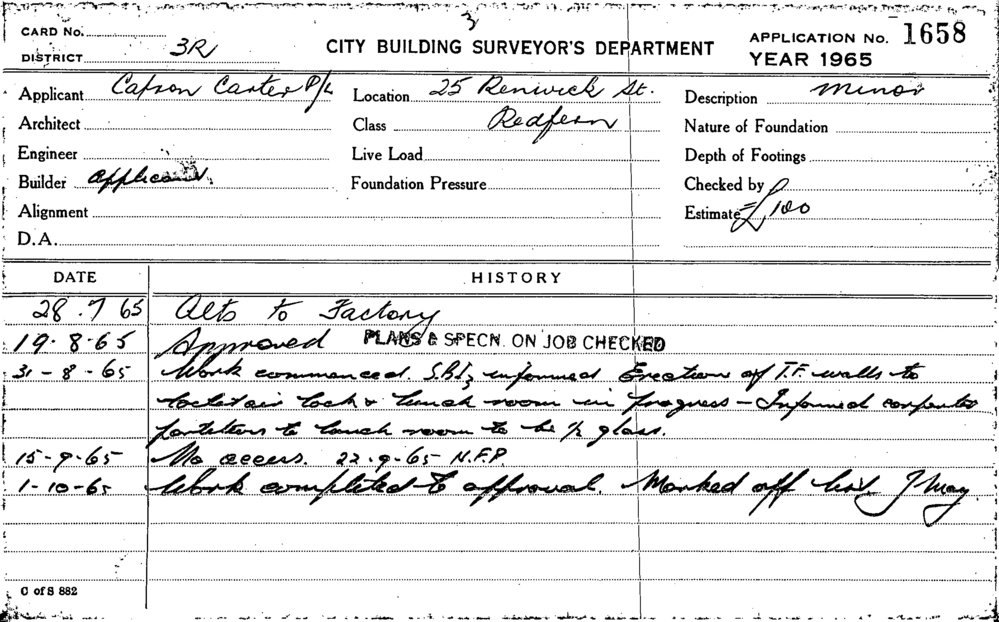 3
CARD No.
DISTRICT 3R
CITY BUILDING SURVEYOR'S DEPARTMENT
APPLICATION No. 1658
YEAR 1965
Applicant Capron Carter P/L
Location 25 Renwick St.
Description Minor
Architect
Class Redfern
Nature of Foundation
Engineer
Live Load
Depth of Footings
Builder applicant
Foundation Pressure
Checked by
Alignment
Estimate £100
D.A.
DATE HISTORY
28.7 65 Alts to Factory
19.8.65 Approved PLANS & SPECN. ON JOB CHECKED
31-8-65 Work commenced. informed Erection of T.F. walls to
lock & lunch room in progress - Informed carpenter
partitions to lunch room to be ½ glass.
15-9-65 No access. 22-9-65 N.F.P.
1-10-65 Work completed to approval. Marked off list J May
C of S 882